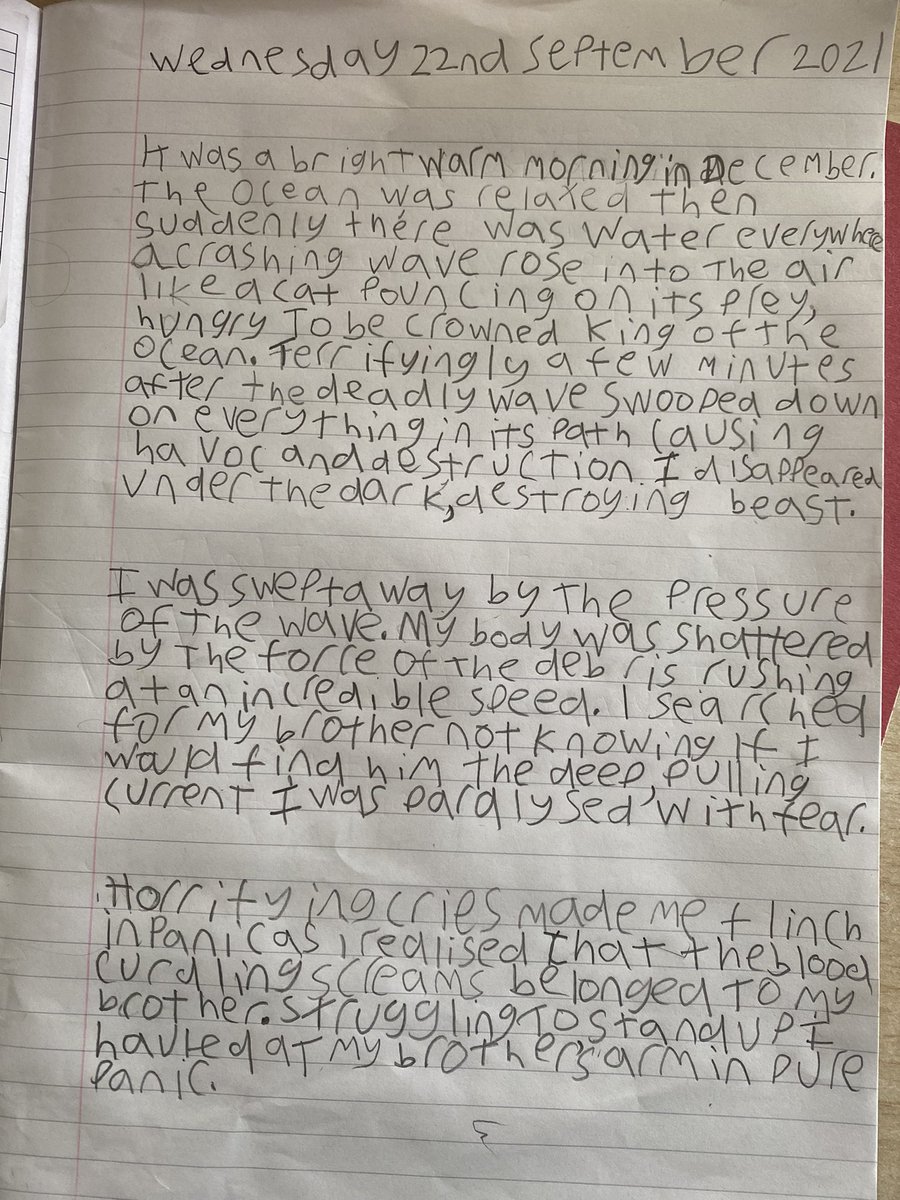 Wednesday 22nd September 2021
It was a bright warm morning in December.
The ocean was relaxed then
suddenly there was water everywhere
a crashing wave rose into the air
like a cat pouncing on its prey,
hungry to be crowned king of the
ocean. Terrifyingly a few minutes
after the deadly wave swooped down
on everything in its path causing
havoc and destruction. I disappeared
under the dark, destroying beast.
I was swept away by the pressure
of the wave. My body was shattered
by the force of the debris rushing
at an incredible speed. I searched
for my brother not knowing if I
would find him the deep, pulling
current I was paralysed with fear.
Horrifying cries made me flinch
in panic as i realised that the blood
curdling screams belonged to my
brother. struggling to stand up I
hauled at my brother's arm in pure
panic.